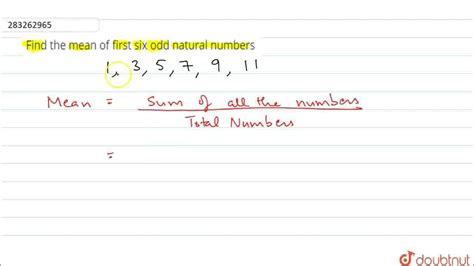 283262965
Find the mean of first six odd natural numbers
1, 3, 5, 7, 9, 11
Mean = Sum of all the numbers
Total Numbers
=
doubtnut